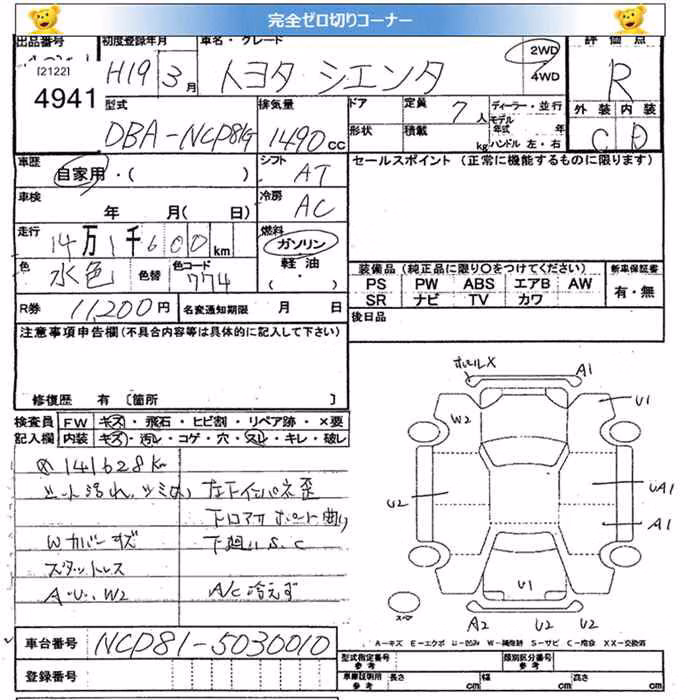 完全ゼロ切りコーナー
出品番号
[2122]
4941
初度登録年月
H19 3月
車名・グレード
トヨタ シエンタ
2WD
4WD
評価点
R
外装 内装
C D
型式
DBA-NCP81G
排気量
1490cc
ドア
形状
定員
7人
積載
kg
ディーラー・並行
モデル年式 年
ハンドル 左・右
車歴
自家用・( )
シフト
AT
車検
年 月( 日)
冷房
AC
走行
14万1千600km
燃料
ガソリン
軽油
( ・ )
色
水色
色替
色コード
774
R券
11,200円
名変通知期限 月 日
セールスポイント (正常に機能するものに限ります)
装備品 (純正品に限り○をつけてください)
PS PW ABS エアB AW
SR ナビ TV カワ
新車保証書
有・無
後日品
注意事項申告欄 (不具合内容等は具体的に記入して下さい)
修復歴 有 〔箇所 〕
検査員記入欄
FW キズ・飛石・ヒビ割・リペア跡・×要
内装 キズ・汚レ・コゲ・穴・スレ・キレ・破レ
141628km
シート汚れ
Wカバーキズ
スタットレス
A・U・W2
下廻りS.C
A/C冷えず
A1
U1
W2
U2
UA1
A1
U1
スペア
A2 U2 U2
A-キズ E-エクボ U-凹み W-補修跡 S-サビ C-腐食 XX-交換済
車台番号 NCP81-5030010
登録番号
型式指定番号 参考
類別区分番号 参考
車庫証明用 参考 長さ cm 幅 cm 高さ cm